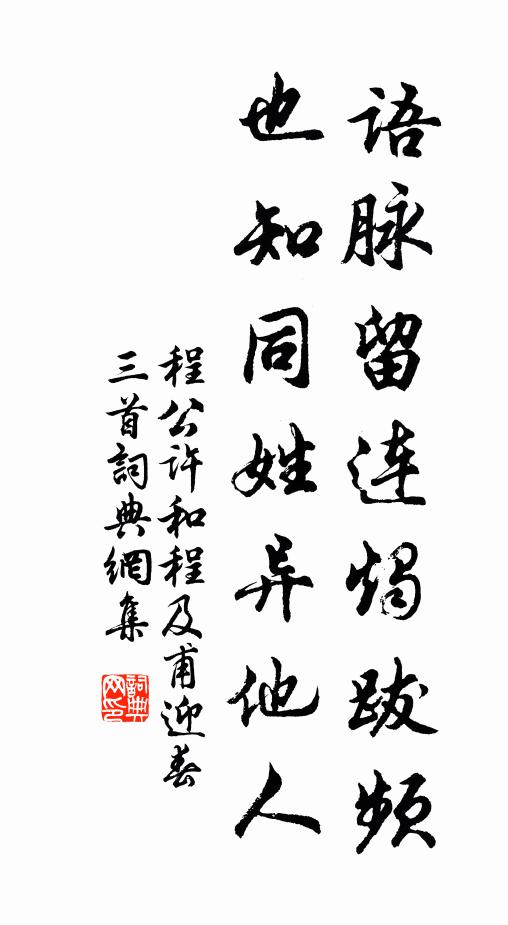 語脉留连燭跋頻
也知同姓异他人
程公许和程及甫迎春
三首詞典網集
詞典网印